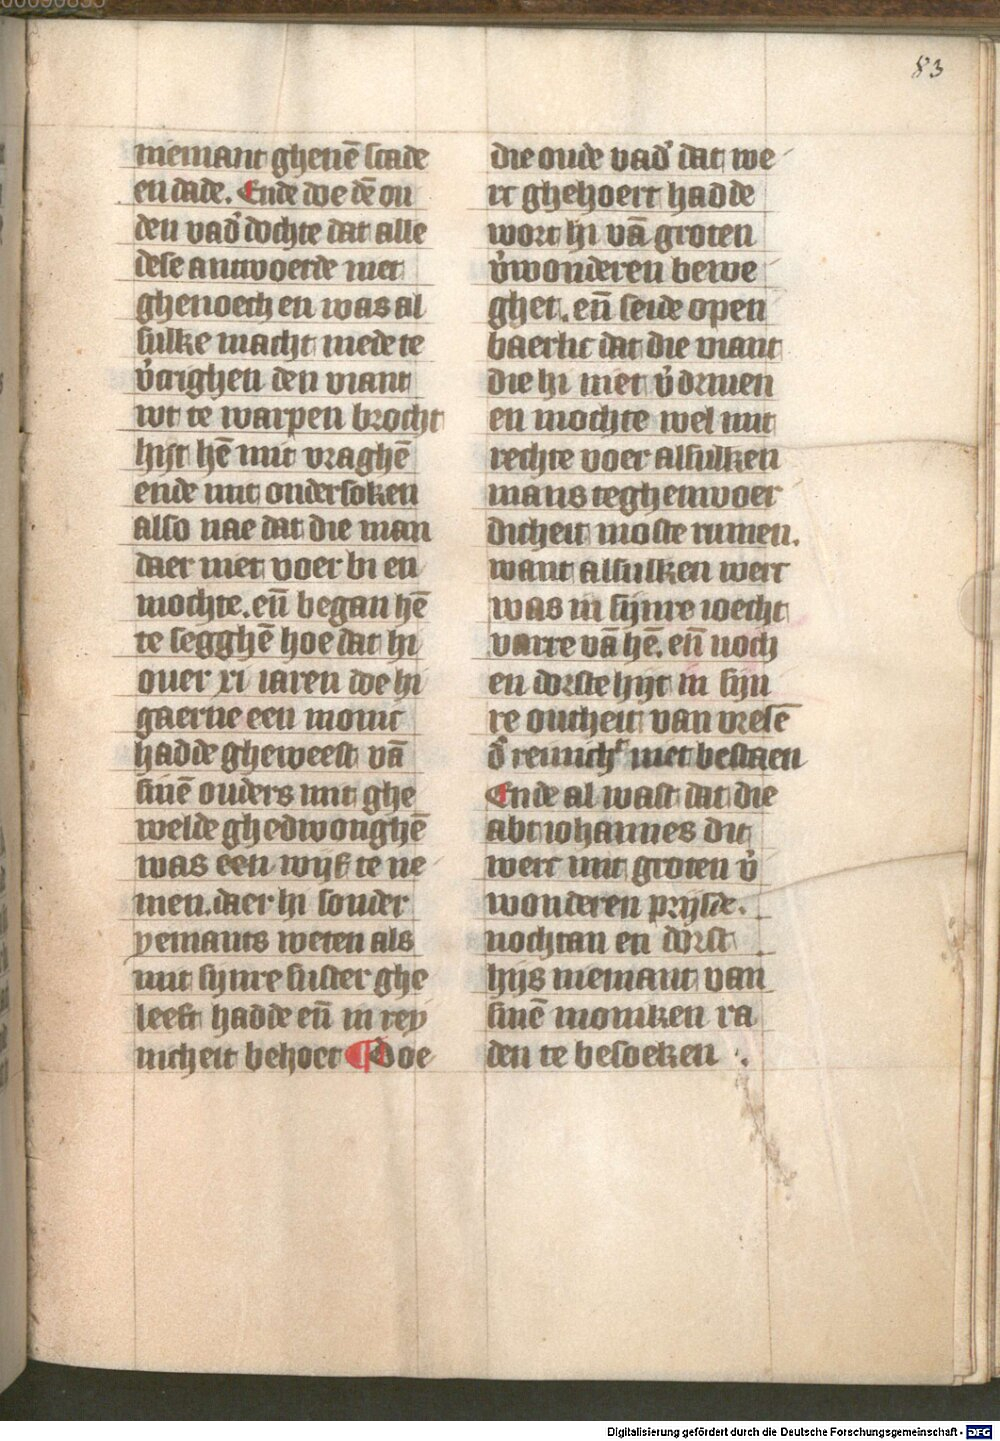 83
niemant ghenē scade
en dade. Ende doe dē ou
den vad' dochte dat alle
dese antwoerde niet
ghenoech en was al
sulke macht mede te
v'crighen den viant
wt te warpen brocht
hijt hē mit vraghē
ende mit ondersoken
also nae dat die man
daer niet voer bi en
mochte. eñ began hē
te segghē hoe dat hi
ouer xi iaren doe hi
gaerne een monic
hadde gheweest vā
sinē ouders mit ghe
welde ghedwonghē
was een wijf te ne
men. daer hi sonder
yemants weten als
mit sijnre suster ghe
leeft hadde eñ in rey
nicheit behoet ¶ Doe
die oude vad' dat we
rt ghehoert hadde
wort hi vā groten
v'wonderen bewe
ghet. eñ seide open
baerlic dat die viant
die hi niet v'driuen
en mochte wel mit
rechte voer alsulken
mans teghenwoer
dicheit moste rumen.
want alsulken wert
was in sijnre ioecht
varre vā hē. eñ noch
en dorste hijt in sijn
re outheit van vresē
d' reinich' niet bestaen
Ende al wast dat die
abt iohannes dit
wert mit groten v'
wonderen prijsde.
nochtan en dorst
hijs niemant van
sinē moniken ra
den te besoeken
Digitalisierung gefördert durch die Deutsche Forschungsgemeinschaft - DFG